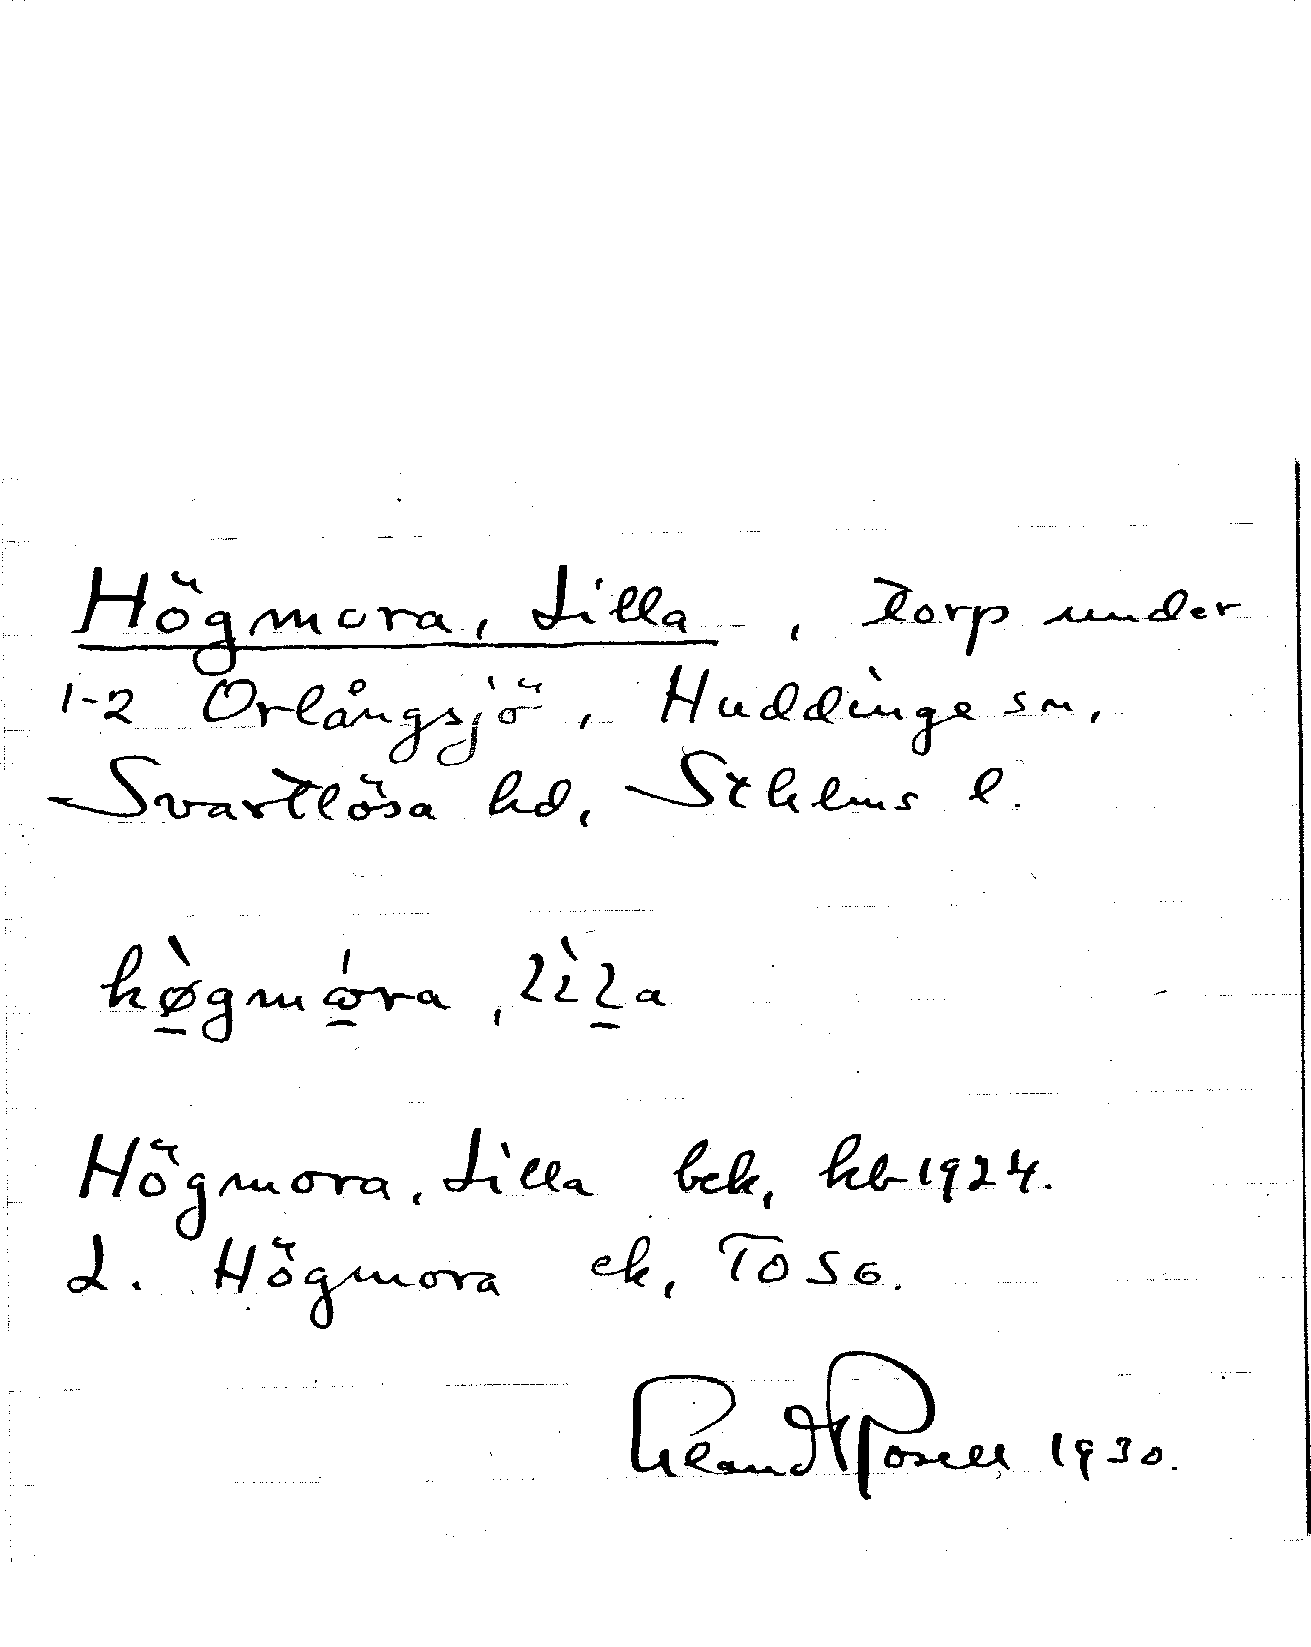 Högmora, Lilla, torp under
1-2 Orlångsjö, Huddinge sn,
Svartlösa hd, Sthlms l.
hø̀gmɷ́ra, lìla
Högmora, Lilla bek, kb 1924.
L. Högmora ek, TO 56.
1930.